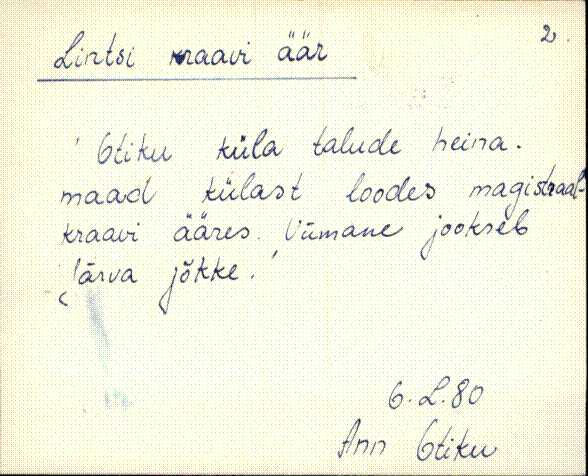 2.
Lintsi kraavi äär
' Otiku küla talude heina-
maad külast loodes magistraal-
kraavi ääres. Viimane jookseb
Järva jõkke.'
6. L. 80
Ann Otiku